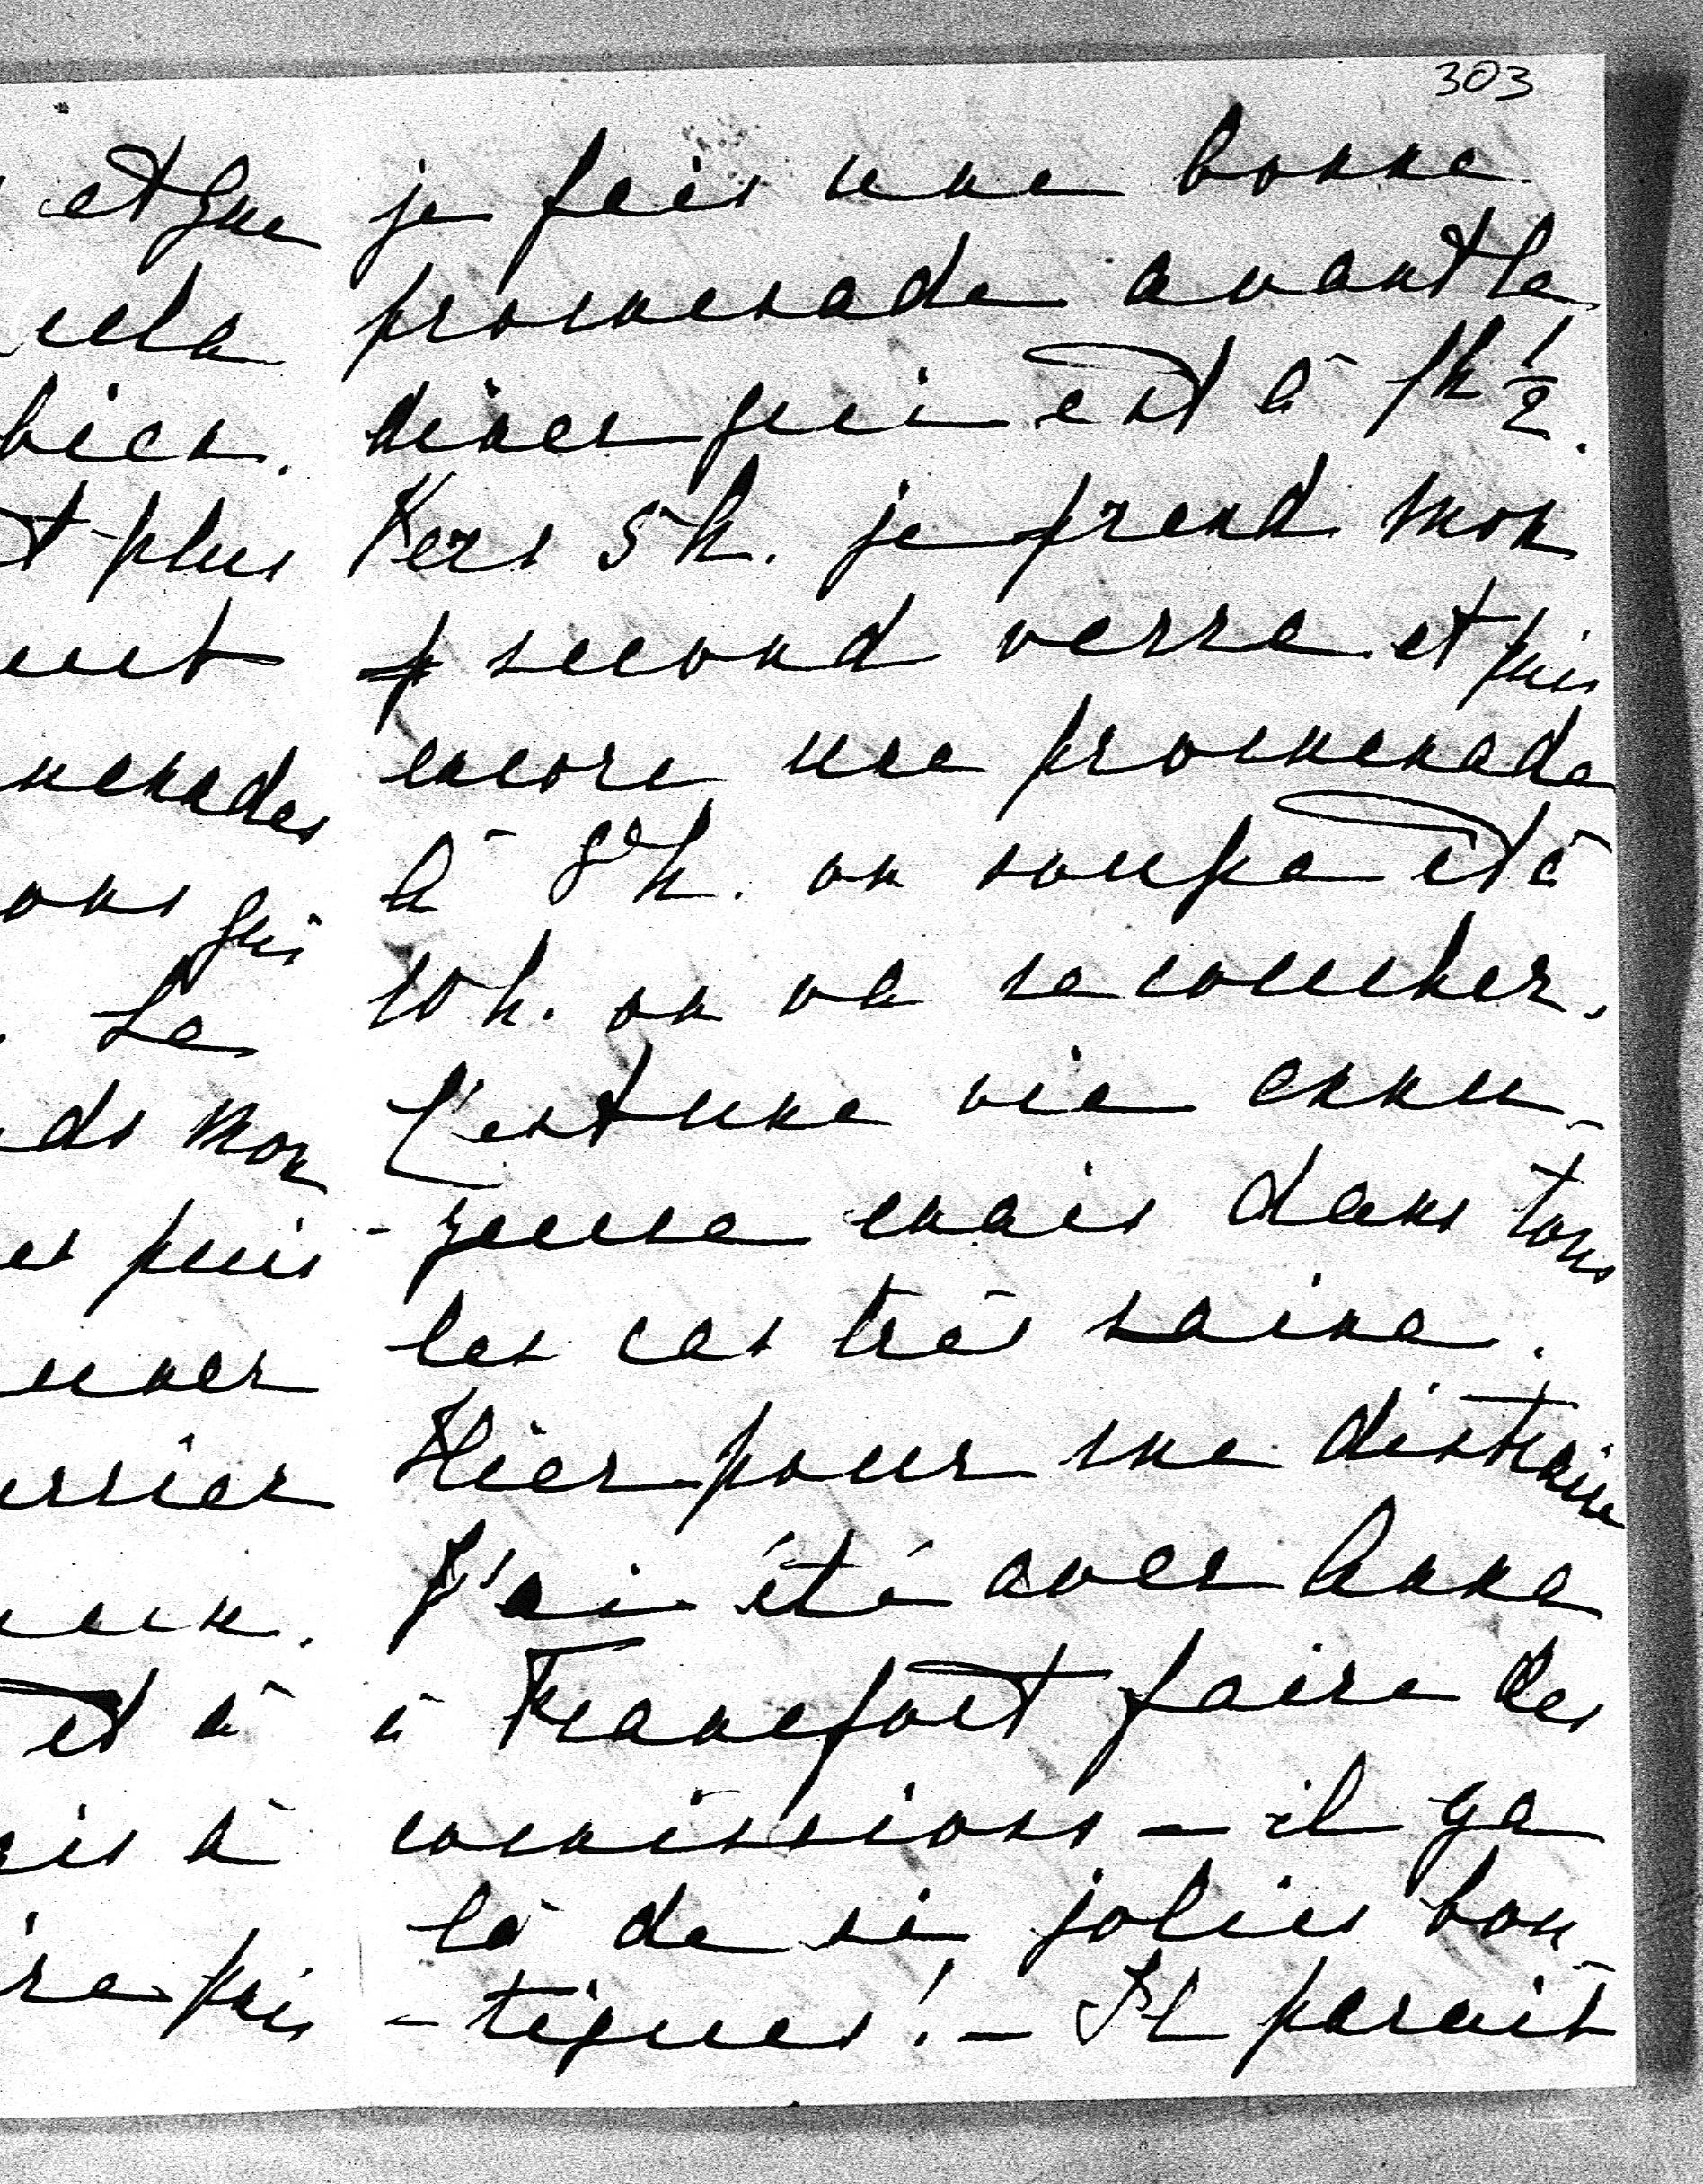 303
et que
cela
bien.
t plus
menades
ons qui
. Le
ds mon
es puis
uner
errier
et à
is à
re puis
je fais une bonne
promenade avant le
diner qui est à 1h 1/2.
Vers 5h. je prend mon
second verre et puis
encore une promenade
à 8h. on soupe et à
10h. on va se coucher.
C'est une vie ennu-
-yeuse mais dans tous
les cas très saine.
Hier pour me distraire
j'ai été avec Anna
à Francfort faire des
comissions – il y a
là de si jolies bou-
-tiques! – Il parait